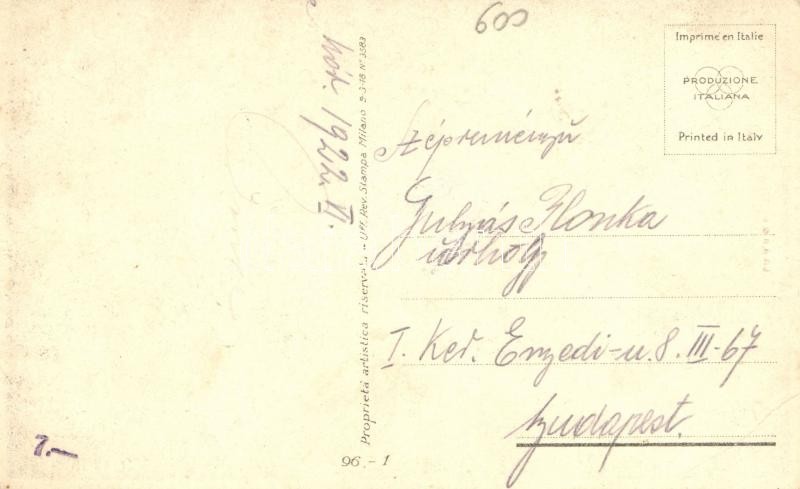 600
Imprimé en Italie
PRODUZIONE
ITALIANA
Printed in Italy
1922. VI.
Proprietà artistica riservata - Uff. Rev. Stampa Milano 9-3-18 Nº 3583
Szépreményű
Gulyás Ilonka
úrhölgy
I. Ker. Enyedi-u. 8. III-67
Budapest.
1.-
96 - 1